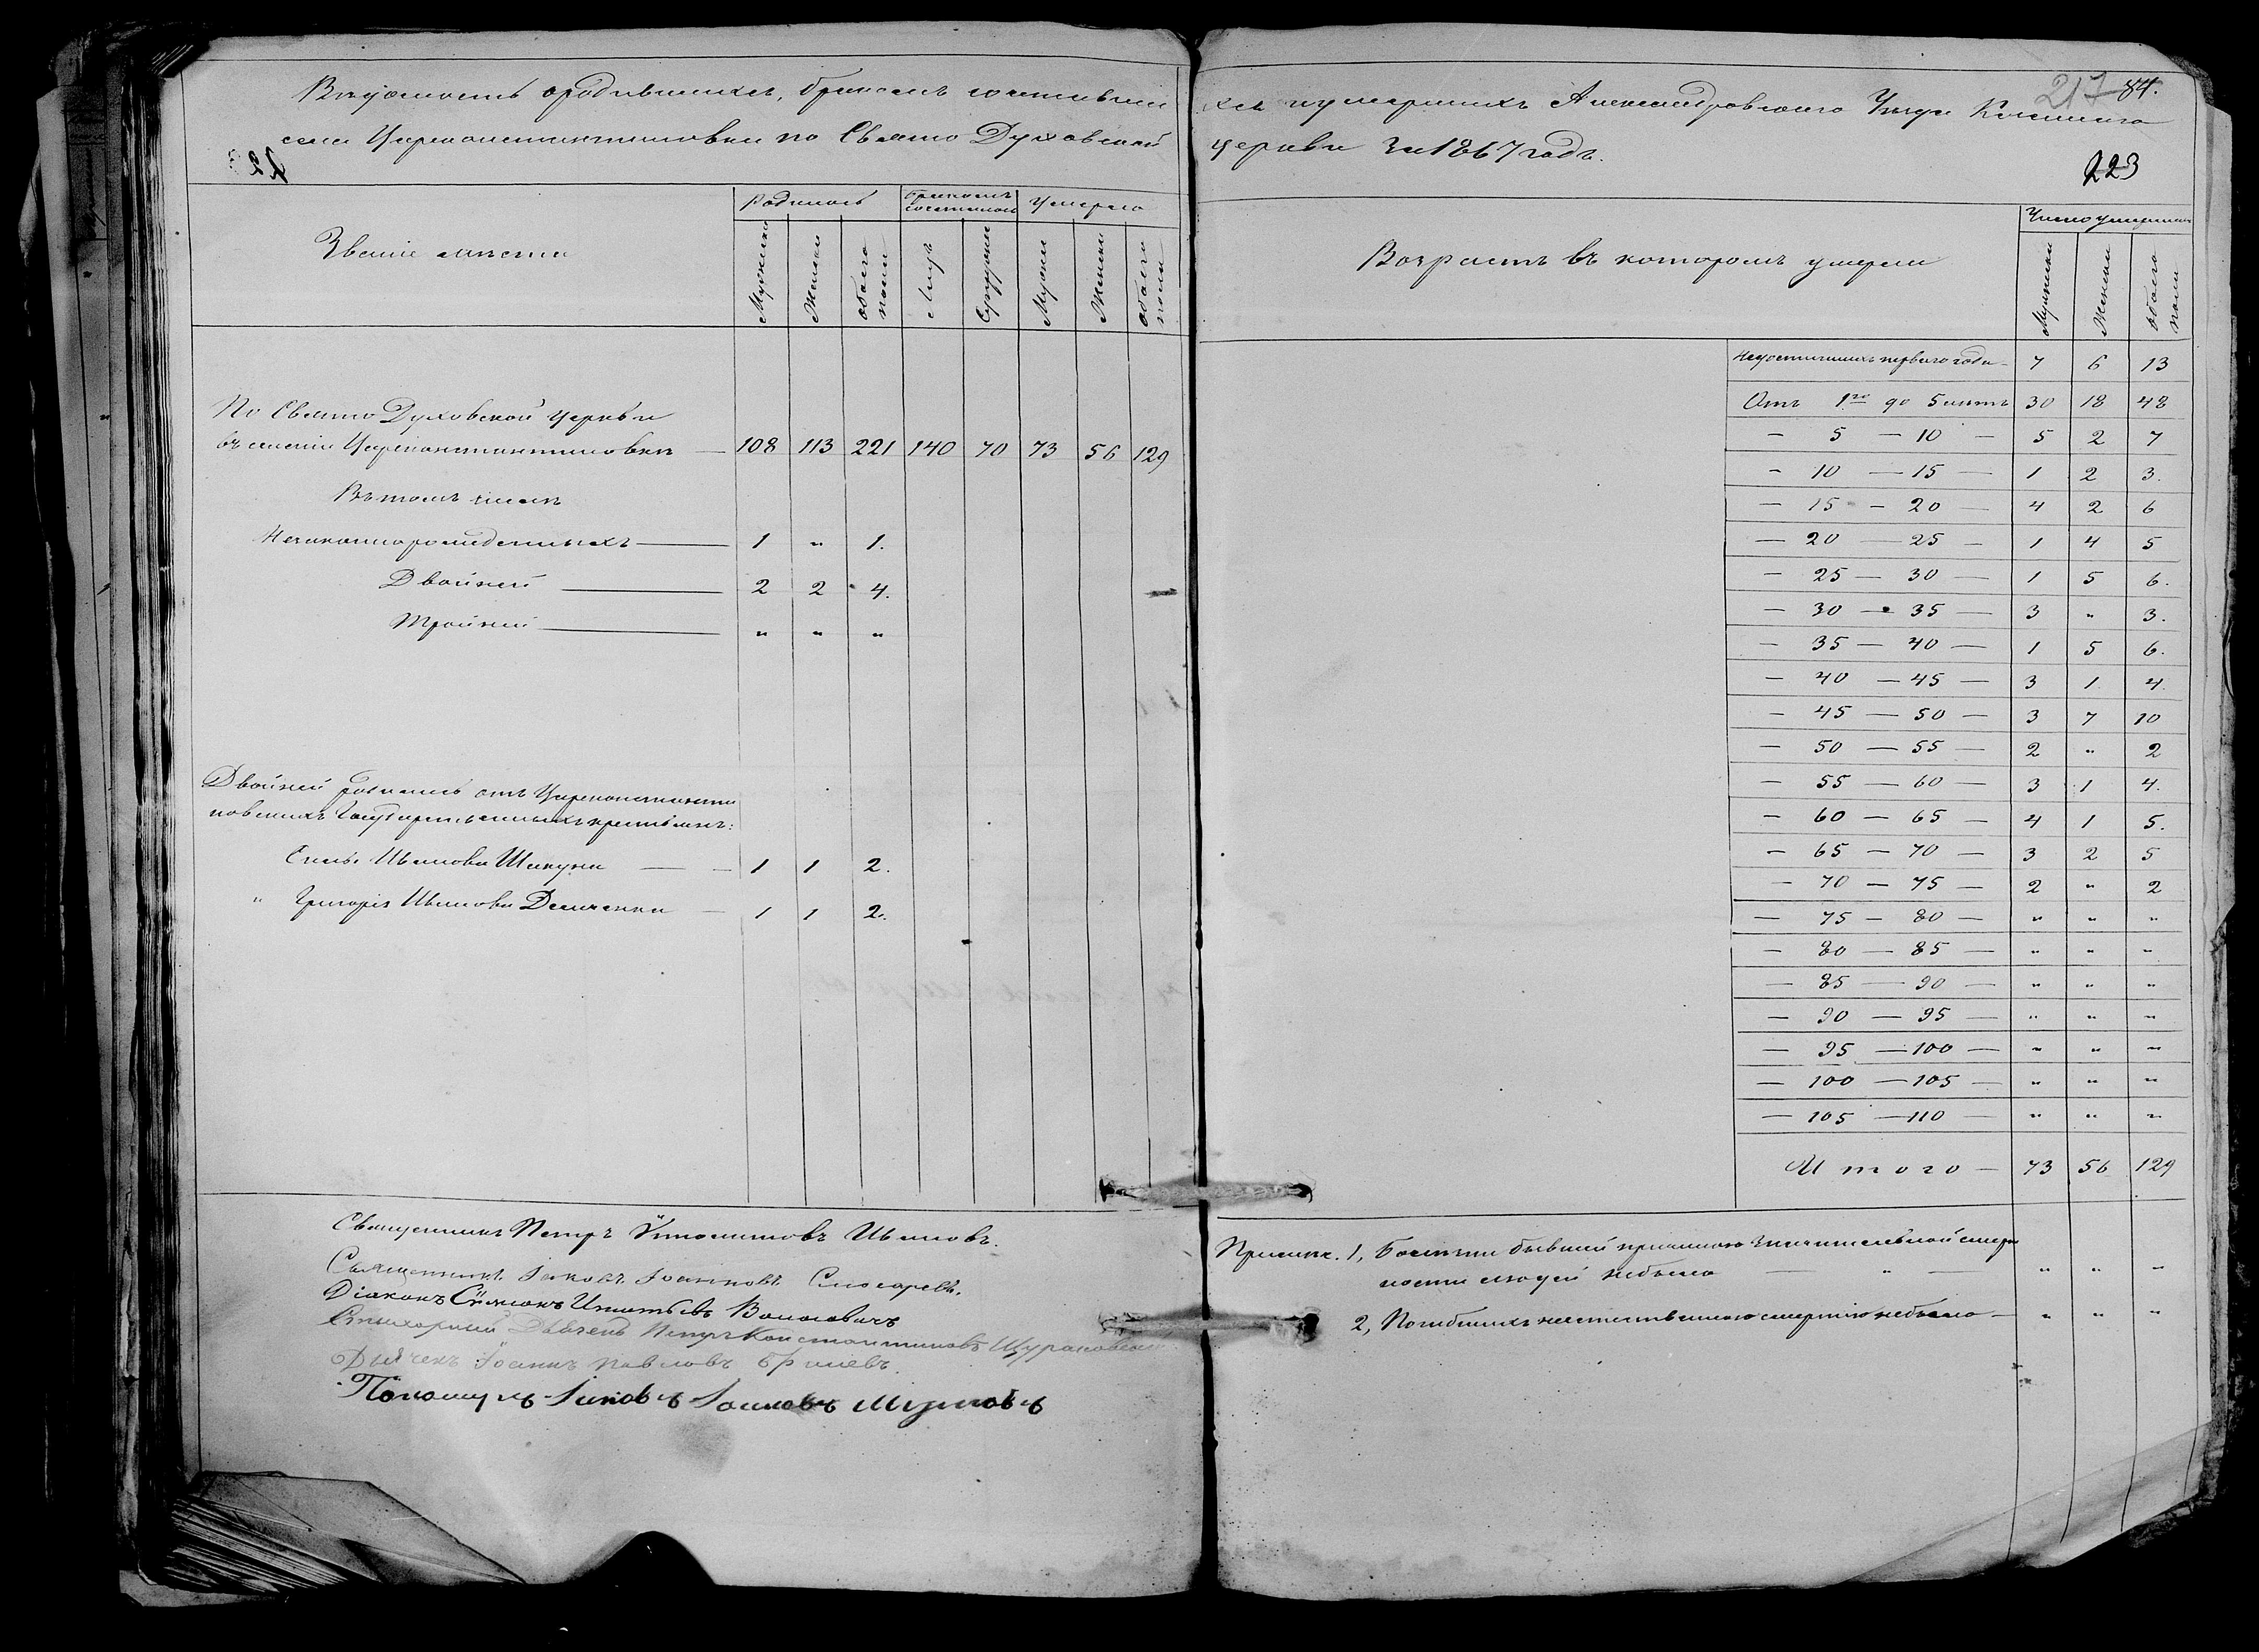 Вѣдомость о родившихся, бракомъ сочетавших
ся и умершихъ Александровскаго Уѣзда Казеннаго
217 84.
села Цареконстантиновки по Свято Духовской
церкви за 1867 годъ.
223
Званіе мѣста
Родилось
Бракомъ сочеталось
Умерло
Мужеска
Женска
Обоего пола
Лицъ
Супружес
Мужес
Женска
Обоего пола
По Свято Духовской церкви
въ селеніи Цареконстантиновкѣ — 108 113 221 140 70 73 56 129
Въ томъ числѣ
Незаконнорожденныхъ — 1 „ 1.
Двойней — 2 2 4.
Тройней — „ „ „
Двойней родилось отъ Цареконстанти
новскихъ Государственныхъ крестьянъ:
Ивановa — 1 1 2.
„ Григорія Иванова — 1 1 2.
Священникъ Петръ Ивановъ.
Священникъ Іаковъ Іоанновъ Слюсаревъ.
Діаконъ Симеонъ Игнатьевъ Волосевичъ
Стихарный Дьячекъ Петръ Константиновъ
Дьячекъ Іоаннъ Павловъ
Пономарь Іаковъ Іоанновъ
Возрастъ въ которомъ умерли
Число умершихъ
Мужески
Женски
Обоего пола
Недостигшихъ перваго года — 7 6 13
Отъ 1го до 5 лѣтъ 30 18 48
— 5 — 10 — 5 2 7
— 10 — 15 — 1 2 3.
— 15 — 20 — 4 2 6
— 20 — 25 — 1 4 5
— 25 — 30 — 1 5 6.
— 30 — 35 — 3 „ 3.
— 35 — 40 — 1 5 6.
— 40 — 45 — 3 1 4.
— 45 — 50 — 3 7 10
— 50 — 55 — 2 „ 2
— 55 — 60 — 3 1 4.
— 60 — 65 — 4 1 5.
— 65 — 70 — 3 2 5
— 70 — 75 — 2 „ 2
— 75 — 80 — „ „ „
— 80 — 85 — „ „ „
— 85 — 90 — „ „ „
— 90 — 95 — „ „ „
— 95 — 100 — „ „ „
— 100 — 105 — „ „ „
— 105 — 110 — „ „ „
Итого — 73 56 129
Примѣч. 1, Болѣзни бывшей причиною значительной смерт
ности людей небыло — „ — „ „ „
2, Погибшихъ неестественною смертію небыло — „ „ „